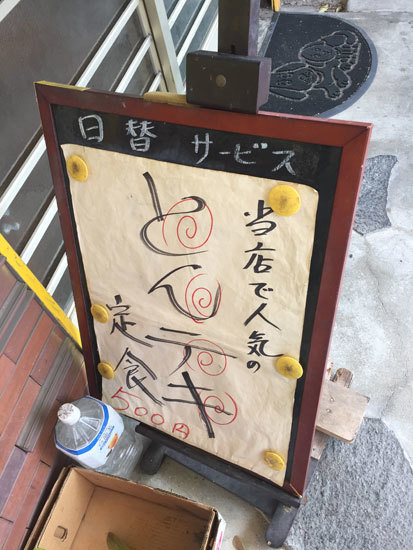 日替サービス
当店で人気の
とんテキ
定食
500円